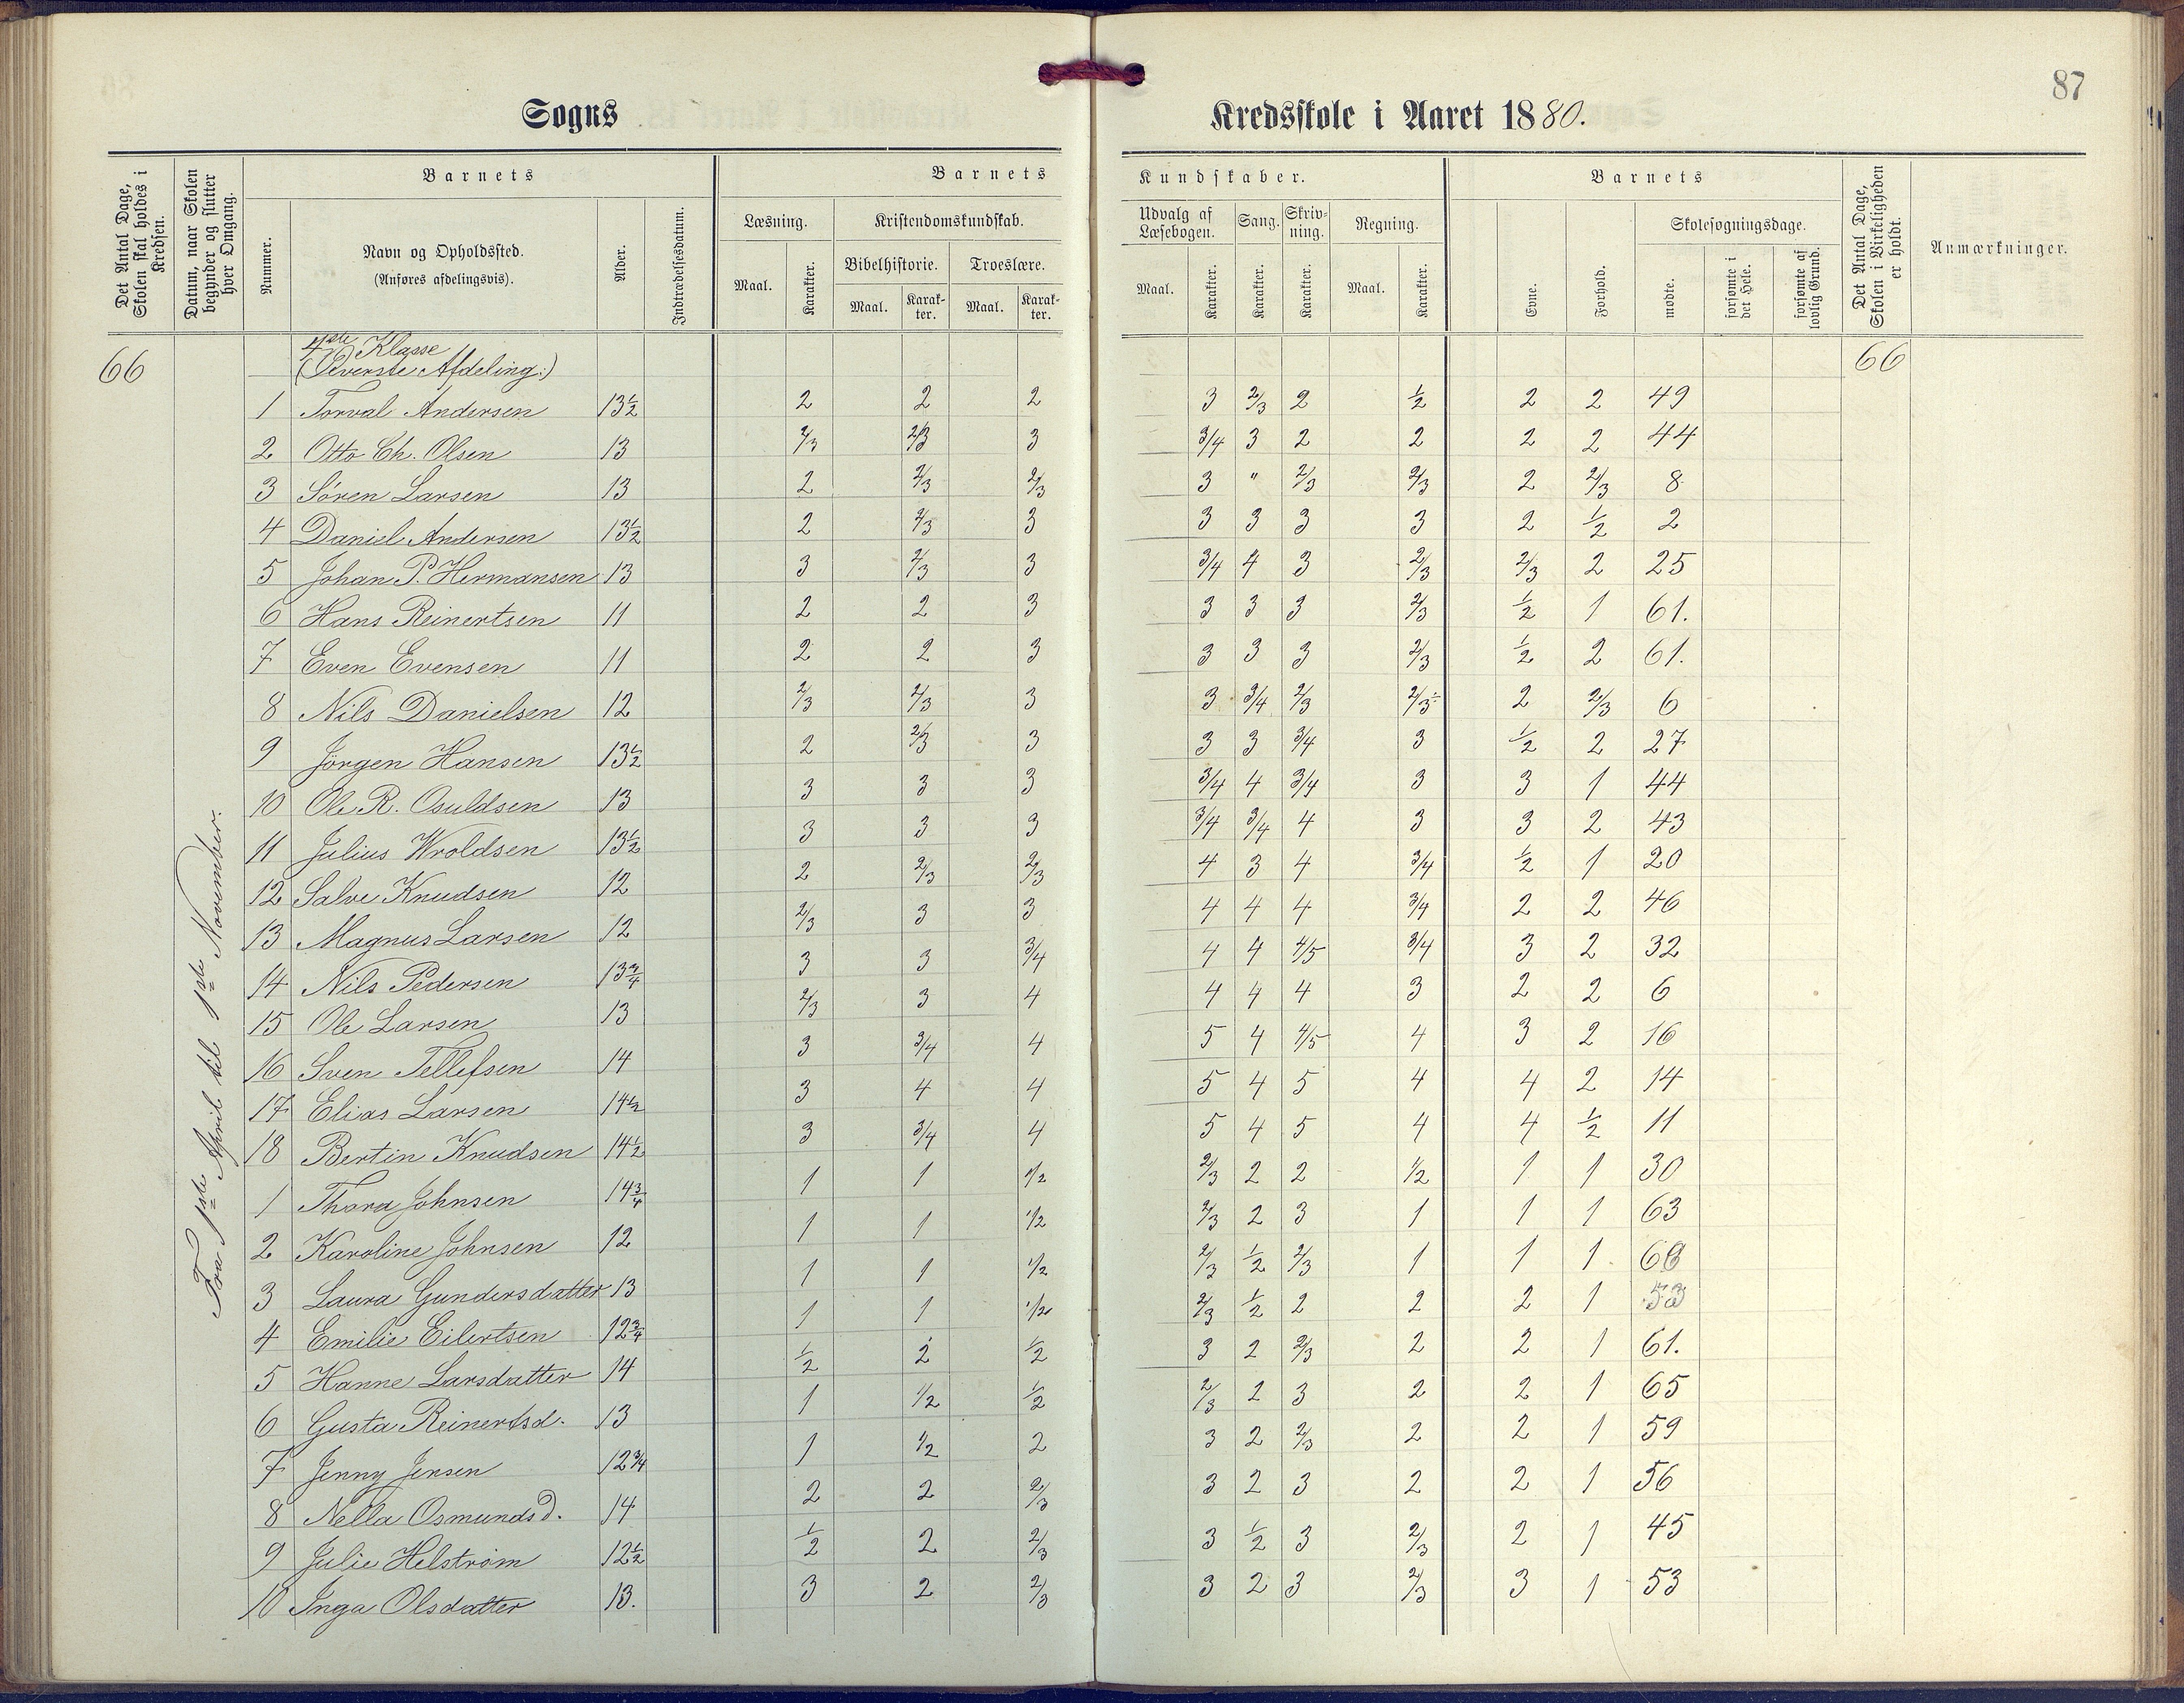 87
Sogns Kredsskole i Aaret 1880.
Det Antal Dage, Skolen skal holdes i Kredsen.
Datum, naar Skolen begynder og slutter hver Omgang.
Barnets
Nummer.
Navn og Opholdssted.
(Anføres afdelingsvis).
Alder.
Indtrædelsesdatum.
Barnets Kundskaber.
Læsning. Maal. Karakter.
Kristendomskundskab.
Bibelhistorie. Maal. Karakter.
Troeslære. Maal. Karakter.
Udvalg af Læsebogen. Maal. Karakter.
Sang. Karakter.
Skrivning. Karakter.
Regning. Maal. Karakter.
Barnets
Evne. Forhold.
Skolesøgningsdage.
mødte. forsømte i det Hele. forsømte af lovlig Grund.
Det Antal Dage, Skolen i Virkeligheden er holdt.
Anmærkninger.
66 4de Klasse 66
(Øverste Afdeling:)
Fra 1ste April til 1ste November.
1 Torval Andersen 13½ 2 2 2 3 2/3 2 ½ 2 2 49
2 Otto Ch. Olsen 13 2/3 2/3 3 3/4 3 2 2 2 2 44
3 Søren Larsen 13 2 2/3 2/3 3 " 2/3 2/3 2 2/3 8
4 Daniel Andersen 13½ 2 2/3 3 3 3 3 3 2 ½ 2
5 Johan P. Hermansen 13 3 2/3 3 3/4 4 3 2/3 2/3 2 25
6 Hans Reinertsen 11 2 2 3 3 3 3 2/3 ½ 1 61.
7 Even Evensen 11 2 2 3 3 3 3 2/3 ½ 2 61.
8 Nils Danielsen 12 2/3 2/3 3 3 3/4 2/3 2/3÷ 2 2/3 6
9 Jörgen Hansen 13½ 2 2/3 3 3 3 3/4 3 ½ 2 27
10 Ole R. Osuldsen 13 3 3 3 3/4 4 3/4 3 3 1 44
11 Julius Wroldsen 13½ 3 3 3 3/4 3/4 4 3 3 2 43
12 Salve Knudsen 12 2 2/3 2/3 4 3 4 3/4 ½ 1 20
13 Magnus Larsen 12 2/3 3 3 4 4 4 3/4 2 2 46
14 Nils Pedersen 13¾ 3 3 3/4 4 4 4/5 3/4 3 2 32
15 Ole Larsen 13 2/3 3 4 4 4 4 3 2 2 6
16 Sven Tellefsen 14 3 3/4 4 5 4 4/5 4 3 2 16
17 Elias Larsen 14½ 3 4 4 5 4 5 4 4 2 14
18 Bertin Knudsen 14½ 3 3/4 4 5 4 5 4 4 ½ 11
1 Thora Johnsen 14¾ 1 1 1/2 2/3 2 2 1/2 1 1 30
2 Karoline Johnsen 12 1 1 1/2 2/3 2 3 1 1 1 63
3 Laura Gundersdatter 13 1 1 1/2 2/3 ½ 2/3 1 1 1
4 Emilie Eilertsen 12¾ 1 1 1/2 2/3 ½ 2 2 2 1 53
5 Hanne Larsdatter 14 ½ 2 ½ 3 2 2/3 2 2 1 61.
6 Gusta Reinertsd. 13 1 1/2 ½ 2/3 2 3 2 2 1 65
7 Jenny Jensen 12¾ 1 1/2 2 3 2 2/3 2 2 1 59
8 Nella Osmundsd. 14 2 2 2/3 3 2 3 2 2 1 56
9 Julie Helström 12½ ½ 2 2/3 3 ½ 3 2/3 2 1 45
10 Inga Olsdatter 13. 3 2 2/3 3 2 3 2/3 3 1 53